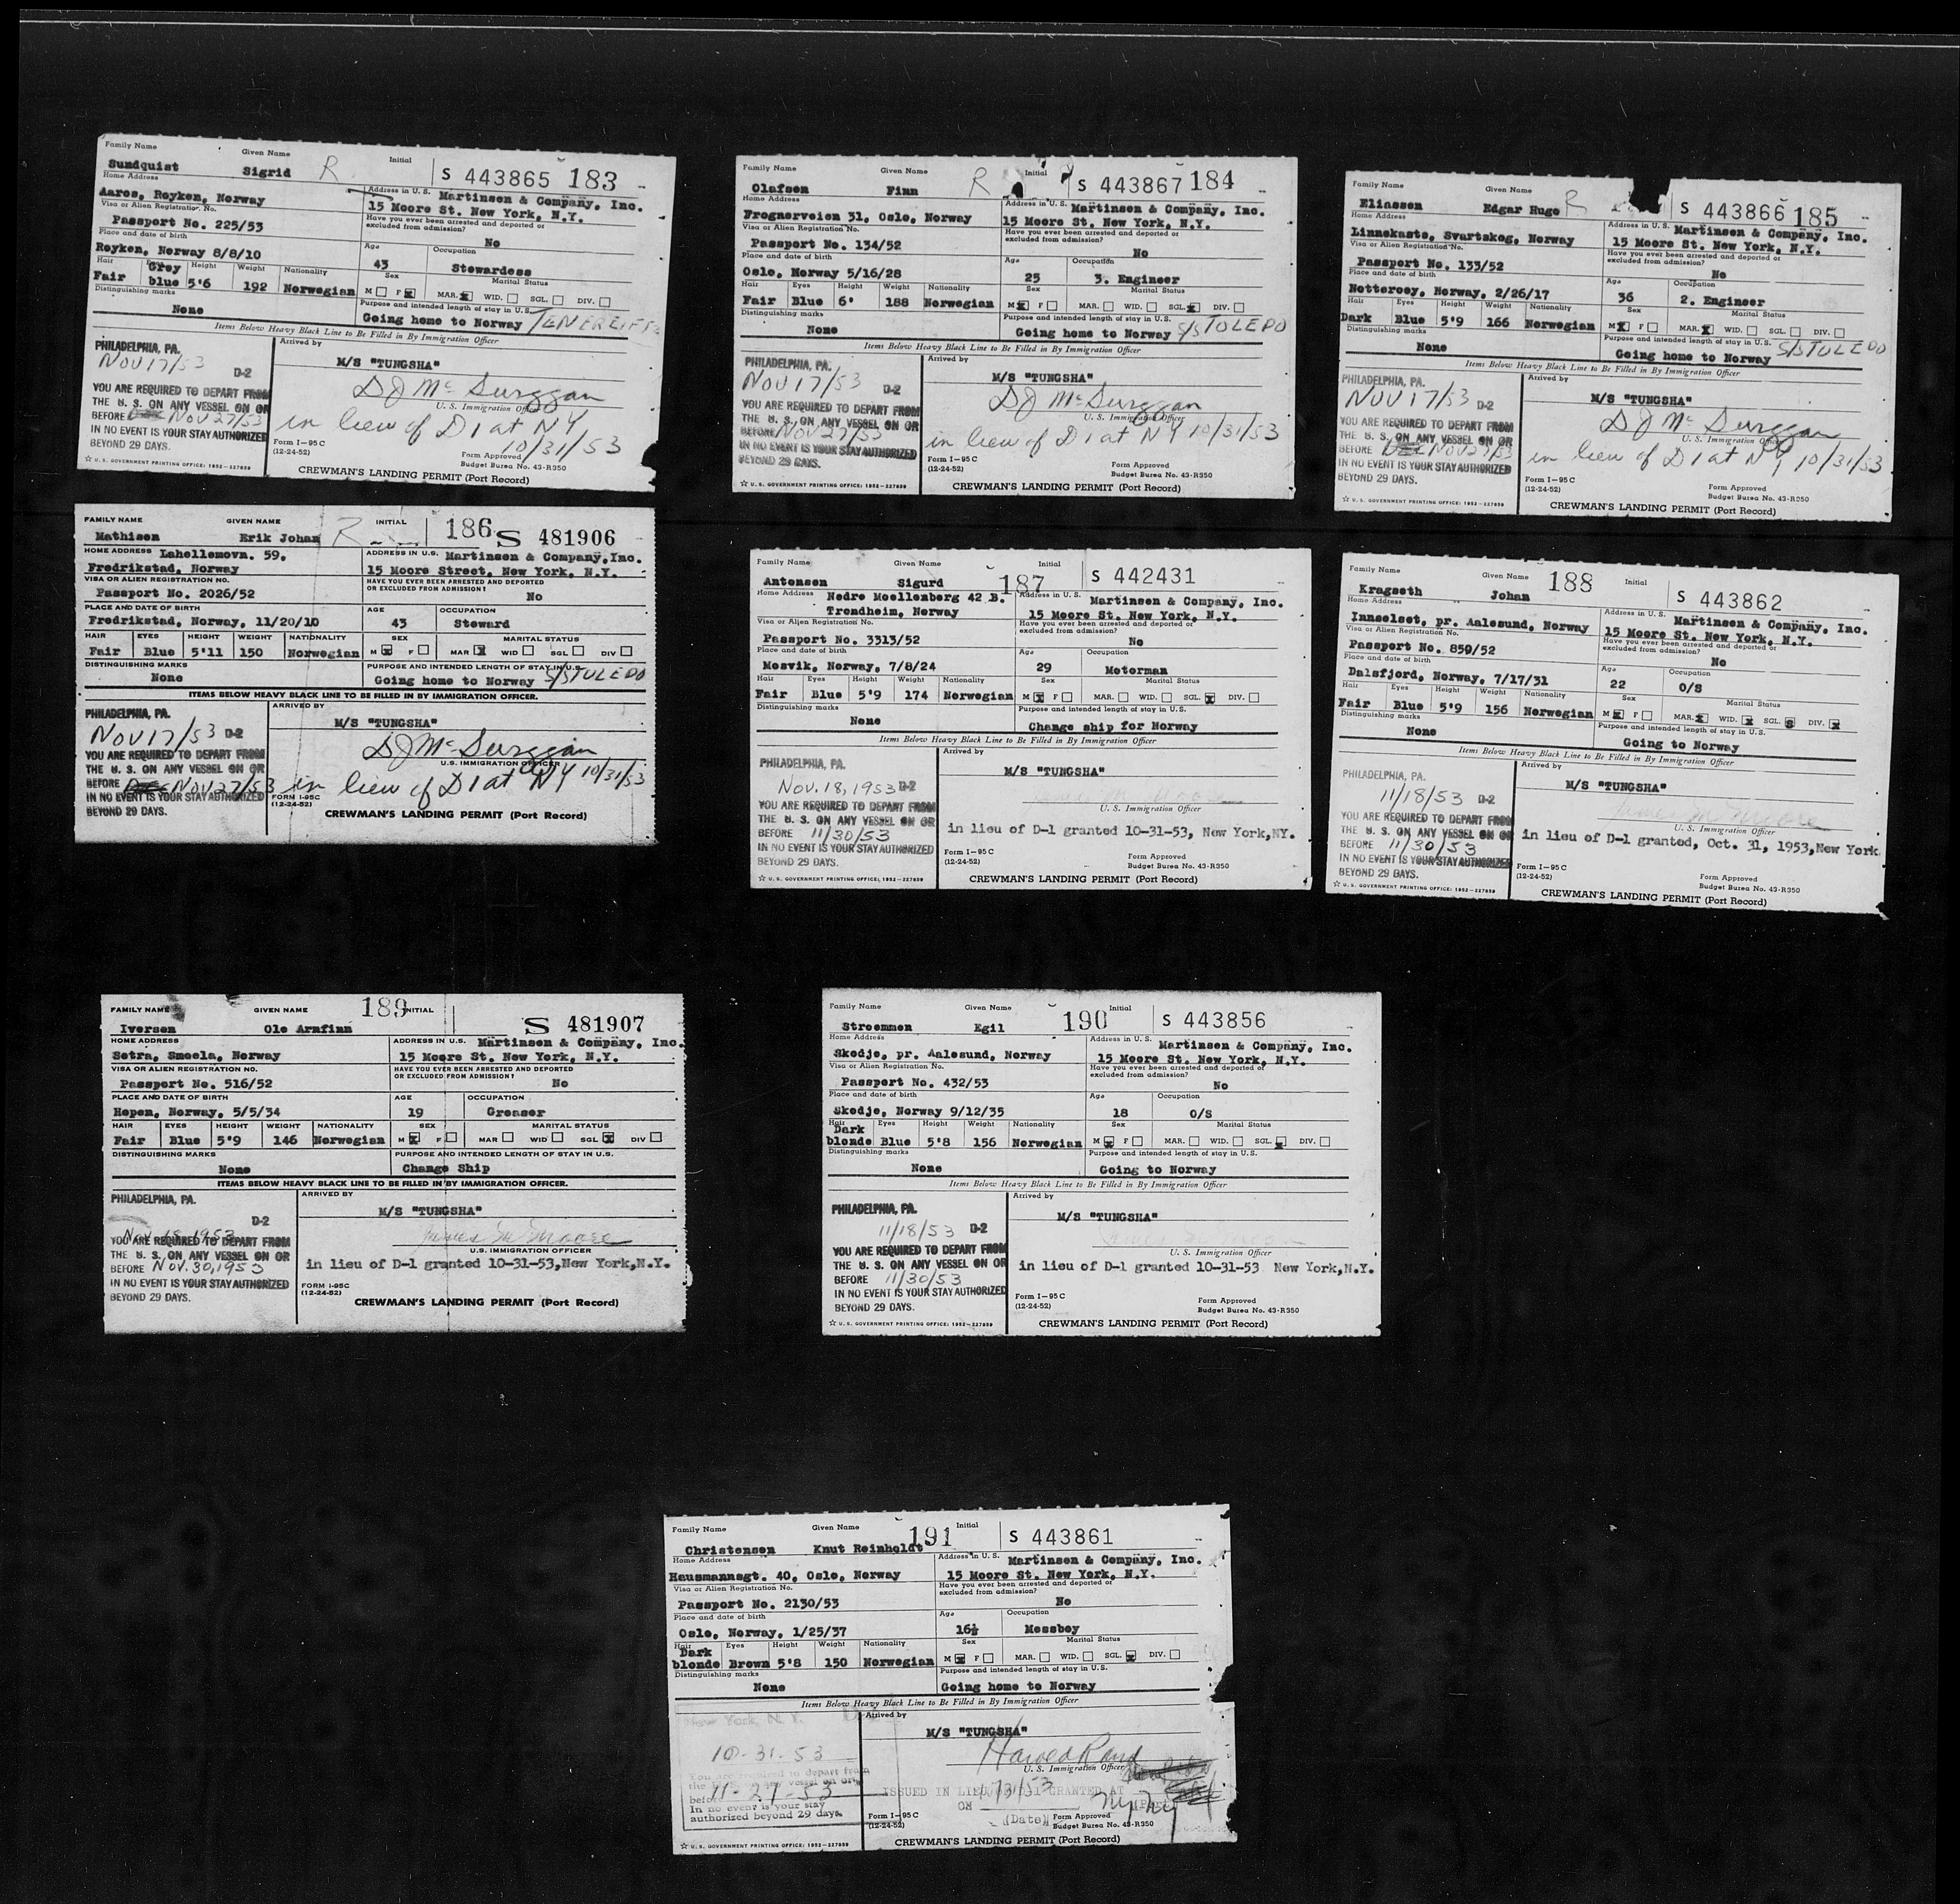 Family Name Given Name Initial
Sundquist Sigrid R S 443865 183
Home Address Address in U.S. Martinsen & Company, Inc.
Aaros, Royken, Norway 15 Moore St. New York, N.Y.
Visa or Alien Registration No. Have you ever been arrested and deported or
Passport No. 225/53 excluded from admission? No
Place and date of birth Age Occupation
Royken, Norway 8/8/10 43 Stewardess
Hair Eyes Height Weight Nationality Sex Marital Status
Fair Grey blue 5'6 192 Norwegian M F X MAR. X WID. SGL. DIV.
Distinguishing marks Purpose and intended length of stay in U.S.
None Going home to Norway TENEREIFFE
Items Below Heavy Black Line to Be Filled in By Immigration Officer
PHILADELPHIA, PA. Arrived by
NOV 17/53 M/S "TUNGSHA"
D-2
YOU ARE REQUIRED TO DEPART FROM D J McSurggan
THE U. S. ON ANY VESSEL ON OR U. S. Immigration Officer
BEFORE NOV 27/53 in lieu of D 1 at NY
IN NO EVENT IS YOUR STAY AUTHORIZED 10/31/53
BEYOND 29 DAYS. Form I-95 C Form Approved
(12-24-52) Budget Bureau No. 43-R350
☆ U. S. GOVERNMENT PRINTING OFFICE: 1952-227859 CREWMAN'S LANDING PERMIT (Port Record)
Family Name Given Name Initial
Olafsen Finn R S 443867 184
Home Address Address in U.S. Martinsen & Company, Inc.
Frognerveien 31, Oslo, Norway 15 Moore St. New York, N.Y.
Visa or Alien Registration No. Have you ever been arrested and deported or
Passport No. 134/52 excluded from admission? No
Place and date of birth Age Occupation
Oslo, Norway 5/16/28 25 3. Engineer
Hair Eyes Height Weight Nationality Sex Marital Status
Fair Blue 6' 188 Norwegian M X F MAR. WID. SGL. X DIV.
Distinguishing marks Purpose and intended length of stay in U.S.
None Going home to Norway S/S TOLEDO
Items Below Heavy Black Line to Be Filled in By Immigration Officer
PHILADELPHIA, PA. Arrived by
NOV 17/53 D-2 M/S "TUNGSHA"
YOU ARE REQUIRED TO DEPART FROM D J McSurggan
THE U. S. ON ANY VESSEL ON OR U. S. Immigration Officer
BEFORE NOV 27/53 in lieu of D 1 at NY 10/31/53
IN NO EVENT IS YOUR STAY AUTHORIZED
BEYOND 29 DAYS. Form I-95 C Form Approved
(12-24-52) Budget Bureau No. 43-R350
☆ U. S. GOVERNMENT PRINTING OFFICE: 1952-227859 CREWMAN'S LANDING PERMIT (Port Record)
Family Name Given Name
Eliassen Edgar Hugo R S 443866 185
Home Address Address in U.S. Martinsen & Company, Inc.
Linnekaste, Svartskog, Norway 15 Moore St. New York, N.Y.
Visa or Alien Registration No. Have you ever been arrested and deported or
Passport No. 133/52 excluded from admission? No
Place and date of birth Age Occupation
Notteroey, Norway, 2/26/17 36 2. Engineer
Hair Eyes Height Weight Nationality Sex Marital Status
Dark Blue 5'9 166 Norwegian M X F MAR. X WID. SGL. DIV.
Distinguishing marks Purpose and intended length of stay in U.S.
None Going home to Norway S/S TOLEDO
Items Below Heavy Black Line to Be Filled in By Immigration Officer
PHILADELPHIA, PA. Arrived by
NOV 17/53 D-2 M/S "TUNGSHA"
YOU ARE REQUIRED TO DEPART FROM D J McSurggan
THE U. S. ON ANY VESSEL ON OR U. S. Immigration Officer
BEFORE NOV 27/53 in lieu of D 1 at NY 10/31/53
IN NO EVENT IS YOUR STAY AUTHORIZED
BEYOND 29 DAYS. Form I-95 C Form Approved
(12-24-52) Budget Bureau No. 43-R350
☆ U. S. GOVERNMENT PRINTING OFFICE: 1952-227859 CREWMAN'S LANDING PERMIT (Port Record)
FAMILY NAME GIVEN NAME INITIAL
Mathisen Erik Johan R 186 S 481906
HOME ADDRESS Lahellemovn. 59, ADDRESS IN U.S. Martinsen & Company, Inc.
Fredrikstad, Norway 15 Moore Street, New York, N.Y.
VISA OR ALIEN REGISTRATION NO. HAVE YOU EVER BEEN ARRESTED AND DEPORTED
Passport No. 2026/52 OR EXCLUDED FROM ADMISSION? No
PLACE AND DATE OF BIRTH AGE OCCUPATION
Fredrikstad, Norway, 11/20/10 43 Steward
HAIR EYES HEIGHT WEIGHT NATIONALITY SEX MARITAL STATUS
Fair Blue 5'11 150 Norwegian M X F MAR X WID SGL DIV
DISTINGUISHING MARKS PURPOSE AND INTENDED LENGTH OF STAY IN U.S.
None Going home to Norway S/S TOLEDO
ITEMS BELOW HEAVY BLACK LINE TO BE FILLED IN BY IMMIGRATION OFFICER.
PHILADELPHIA, PA. ARRIVED BY
NOV 17/53 D-2 M/S "TUNGSHA"
YOU ARE REQUIRED TO DEPART FROM D J McSurggan
THE U. S. ON ANY VESSEL ON OR U.S. IMMIGRATION OFFICER
BEFORE NOV 27/53 in lieu of D 1 at NY 10/31/53
IN NO EVENT IS YOUR STAY AUTHORIZED FORM I-95C
BEYOND 29 DAYS. (12-24-52)
CREWMAN'S LANDING PERMIT (Port Record)
Family Name Given Name Initial
Antonsen Sigurd 187 S 442431
Home Address Nedre Moellenberg 42 B. Address in U.S. Martinsen & Company, Inc.
Trondheim, Norway 15 Moore St. New York, N.Y.
Visa or Alien Registration No. Have you ever been arrested and deported or
Passport No. 3313/52 excluded from admission? No
Place and date of birth Age Occupation
Mosvik, Norway, 7/8/24 29 Motorman
Hair Eyes Height Weight Nationality Sex Marital Status
Fair Blue 5'9 174 Norwegian M X F MAR. WID. SGL. X DIV.
Distinguishing marks Purpose and intended length of stay in U.S.
None Change ship for Norway
Items Below Heavy Black Line to Be Filled in By Immigration Officer
PHILADELPHIA, PA. Arrived by
Nov. 18, 1953 D-2 M/S "TUNGSHA"
YOU ARE REQUIRED TO DEPART FROM
THE U. S. ON ANY VESSEL ON OR U. S. Immigration Officer
BEFORE 11/30/53 in lieu of D-1 granted 10-31-53, New York,NY.
IN NO EVENT IS YOUR STAY AUTHORIZED
BEYOND 29 DAYS. Form I-95 C Form Approved
(12-24-52) Budget Bureau No. 43-R350
☆ U. S. GOVERNMENT PRINTING OFFICE: 1952-227859 CREWMAN'S LANDING PERMIT (Port Record)
Family Name Given Name Initial
Kragseth Johan 188 S 443862
Home Address Address in U.S. Martinsen & Company, Inc.
Innselset, pr. Aalesund, Norway 15 Moore St. New York, N.Y.
Visa or Alien Registration No. Have you ever been arrested and deported or
Passport No. 859/52 excluded from admission? No
Place and date of birth Age Occupation
Dalsfjord, Norway, 7/17/31 22 O/S
Hair Eyes Height Weight Nationality Sex Marital Status
Fair Blue 5'9 156 Norwegian M X F MAR. X WID. X SGL. S DIV. X
Distinguishing marks Purpose and intended length of stay in U.S.
None Going to Norway
Items Below Heavy Black Line to Be Filled in By Immigration Officer
PHILADELPHIA, PA. Arrived by
11/18/53 D-2 M/S "TUNGSHA"
YOU ARE REQUIRED TO DEPART FROM James M Moore
THE U. S. ON ANY VESSEL ON OR U. S. Immigration Officer
BEFORE 11/30/53 in lieu of D-1 granted, Oct. 31, 1953,New York
IN NO EVENT IS YOUR STAY AUTHORIZED
BEYOND 29 DAYS. Form I-95 C Form Approved
(12-24-52) Budget Bureau No. 43-R350
☆ U. S. GOVERNMENT PRINTING OFFICE: 1952-227859 CREWMAN'S LANDING PERMIT (Port Record)
FAMILY NAME GIVEN NAME 189 INITIAL
Iversen Ole Arnfinn S 481907
HOME ADDRESS ADDRESS IN U.S. Martinsen & Company, Inc.
Setra, Smoela, Norway 15 Moore St. New York, N.Y.
VISA OR ALIEN REGISTRATION NO. HAVE YOU EVER BEEN ARRESTED AND DEPORTED
Passport No. 516/52 OR EXCLUDED FROM ADMISSION? No
PLACE AND DATE OF BIRTH AGE OCCUPATION
Hopen, Norway, 5/5/34 19 Greaser
HAIR EYES HEIGHT WEIGHT NATIONALITY SEX MARITAL STATUS
Fair Blue 5'9 146 Norwegian M X F MAR WID SGL X DIV
DISTINGUISHING MARKS PURPOSE AND INTENDED LENGTH OF STAY IN U.S.
None Change Ship
ITEMS BELOW HEAVY BLACK LINE TO BE FILLED IN BY IMMIGRATION OFFICER.
PHILADELPHIA, PA. ARRIVED BY
D-2 M/S "TUNGSHA"
Nov. 18, 1953
YOU ARE REQUIRED TO DEPART FROM James M Moore
THE U. S. ON ANY VESSEL ON OR U.S. IMMIGRATION OFFICER
BEFORE Nov. 30, 1953 in lieu of D-1 granted 10-31-53,New York,N.Y.
IN NO EVENT IS YOUR STAY AUTHORIZED FORM I-95C
BEYOND 29 DAYS. (12-24-52)
CREWMAN'S LANDING PERMIT (Port Record)
Family Name Given Name Initial
Stroemmen Egil 190 S 443856
Home Address Address in U.S. Martinsen & Company, Inc.
Skodje, pr. Aalesund, Norway 15 Moore St. New York, N.Y.
Visa or Alien Registration No. Have you ever been arrested and deported or
Passport No. 432/53 excluded from admission? No
Place and date of birth Age Occupation
Skodje, Norway 9/12/35 18 O/S
Hair Eyes Height Weight Nationality Sex Marital Status
Dark blonde Blue 5'8 156 Norwegian M X F MAR. WID. SGL. X DIV.
Distinguishing marks Purpose and intended length of stay in U.S.
None Going to Norway
Items Below Heavy Black Line to Be Filled in By Immigration Officer
PHILADELPHIA, PA. Arrived by
11/18/53 D-2 M/S "TUNGSHA"
YOU ARE REQUIRED TO DEPART FROM James M Moore
THE U. S. ON ANY VESSEL ON OR U. S. Immigration Officer
BEFORE 11/30/53 in lieu of D-1 granted 10-31-53 New York,N.Y.
IN NO EVENT IS YOUR STAY AUTHORIZED
BEYOND 29 DAYS. Form I-95 C Form Approved
(12-24-52) Budget Bureau No. 43-R350
☆ U. S. GOVERNMENT PRINTING OFFICE: 1952-227859 CREWMAN'S LANDING PERMIT (Port Record)
Family Name Given Name Initial
Christensen Knut Reinholdt 191 S 443861
Home Address Address in U.S. Martinsen & Company, Inc.
Hausmannsgt. 40, Oslo, Norway 15 Moore St. New York, N.Y.
Visa or Alien Registration No. Have you ever been arrested and deported or
Passport No. 2130/53 excluded from admission? No
Place and date of birth Age Occupation
Oslo, Norway, 1/25/37 16½ Messboy
Hair Eyes Height Weight Nationality Sex Marital Status
Dark blonde Brown 5'8 150 Norwegian M X F MAR. WID. SGL. X DIV.
Distinguishing marks Purpose and intended length of stay in U.S.
None Going home to Norway
Items Below Heavy Black Line to Be Filled in By Immigration Officer
New York, N. Y. Arrived by
M/S "TUNGSHA"
10-31-53 Harold Rand
You are required to depart from U. S. Immigration Officer
the U. S. on any vessel on or
before 11-27-53 ISSUED IN LIEU OF D-1 GRANTED AT
In no event is your stay ON
authorized beyond 29 days. Form I-95 C (Date) Form Approved
(12-24-52) Budget Bureau No. 43-R350
☆ U. S. GOVERNMENT PRINTING OFFICE: 1952-227859 CREWMAN'S LANDING PERMIT (Port Record)